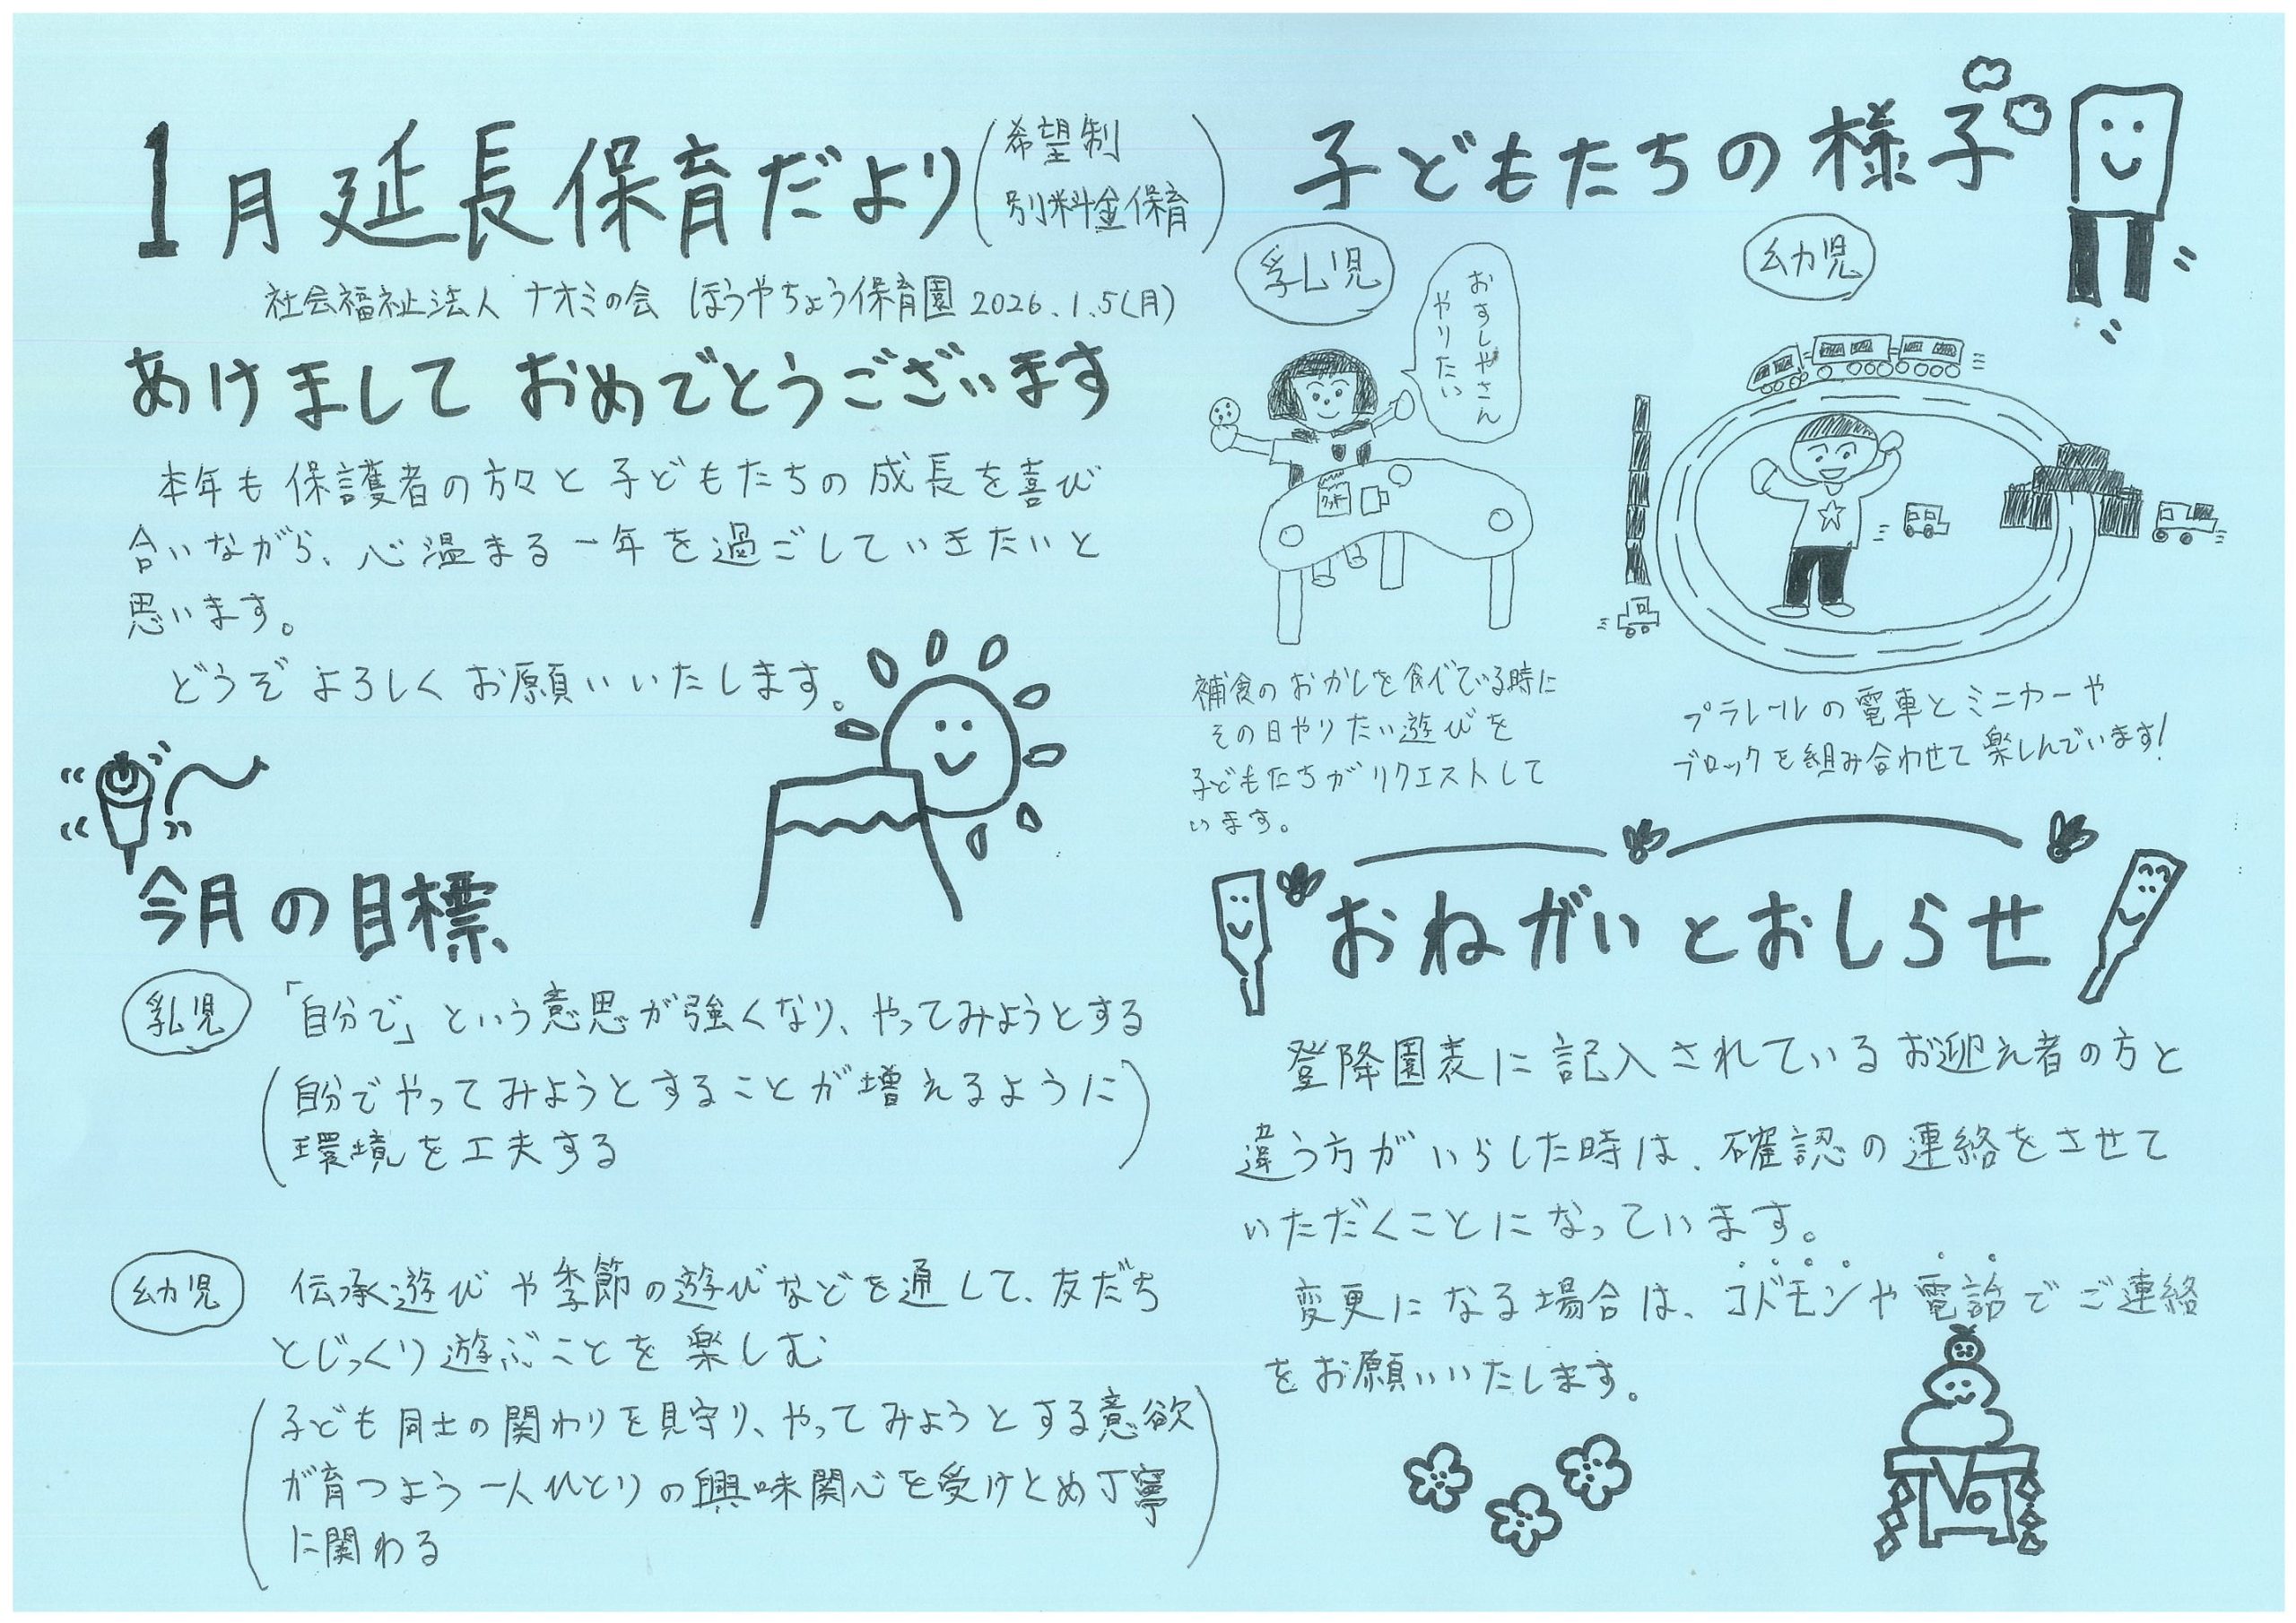 1月延長保育だより(希望制
別料金保育)
社会福祉法人 ナオミの会 ほうやちょう保育園 2026.1.5(月)
あけまして おめでとうございます
本年も保護者の方々と子どもたちの成長を喜び
合いながら、心温まる一年を過ごしていきたいと
思います。
どうぞよろしくお願いいたします。
今月の目標
乳児 「自分で」という意思が強くなり、やってみようとする
(自分でやってみようとすることが増えるように
環境を工夫する)
幼児 伝承遊びや季節の遊びなどを通して、友だち
とじっくり遊ぶことを楽しむ
(子ども同士の関わりを見守り、やってみようとする意欲
が育つよう一人ひとりの興味関心を受けとめ丁寧
に関わる)
子どもたちの様子
乳児
おすしやさん
やりたい
補食のおかしを食べている時に
その日やりたい遊びを
子どもたちがリクエストして
います。
幼児
プラレールの電車とミニカーや
ブロックを組み合わせて楽しんでいます!
おねがいとおしらせ
登降園表に記入されているお迎え者の方と
違う方がいらした時は、確認の連絡をさせて
いただくことになっています。
変更になる場合は、コドモンや電話でご連絡
をお願いいたします。